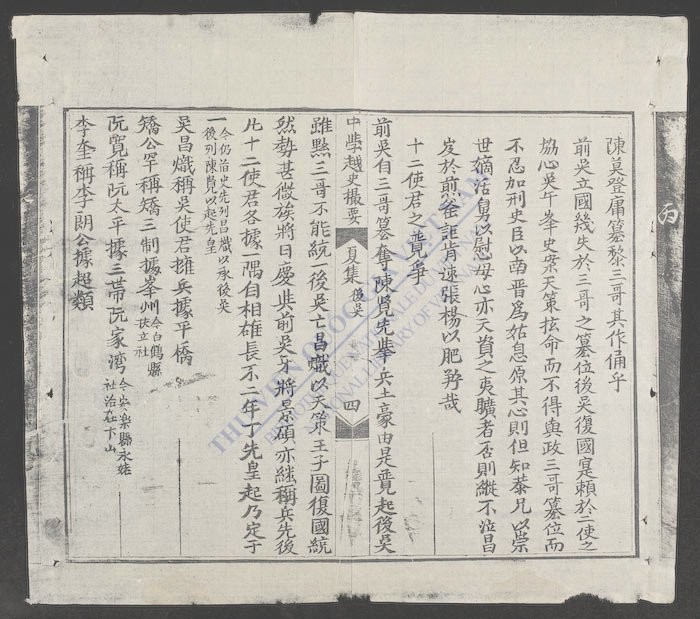 陳莫登庸篡黎三哥其作俑乎
前吳立國幾失於三哥之篡位後吳復國寔賴於二使之
協心吳午峯史案天策抗命而不得與政三哥篡位而
不忍加刑史臣以南晋爲姑息原其心則但知恭兄以崇
世嫡活舅以慰母心亦天資之夷曠者否則縱不泣昌
岌於煎釜詎肯速張楊以肥羜哉
十二使君之競爭
前吳有三哥篡奪陳覽先举兵土豪由是競起後吳
中學越史撮要
夏集
後吳
四
雖黜三哥不能統一後吳亡昌熾以天策王子圖復國統
然勢甚微矮將日慶共前吳牙將景碩亦継稱兵先後
凢十二使君各據一隅自相雄長不二年丁先皇起乃定于
一
今仍旧史先列昌熾以承後吳
後列陳覽以起先皇
吳昌熾稱吳使君擁兵據平橋
矯公罕稱矯三制據峯州
今白鶴縣
扶立社
阮寬稱阮太平據三帶阮家湾
今安樂縣永姥
社治在下山
李奎稱李朗公據超類
THƯ VIỆN QUỐC GIA VIỆT NAM
NATIONAL LIBRARY OF VIETNAM